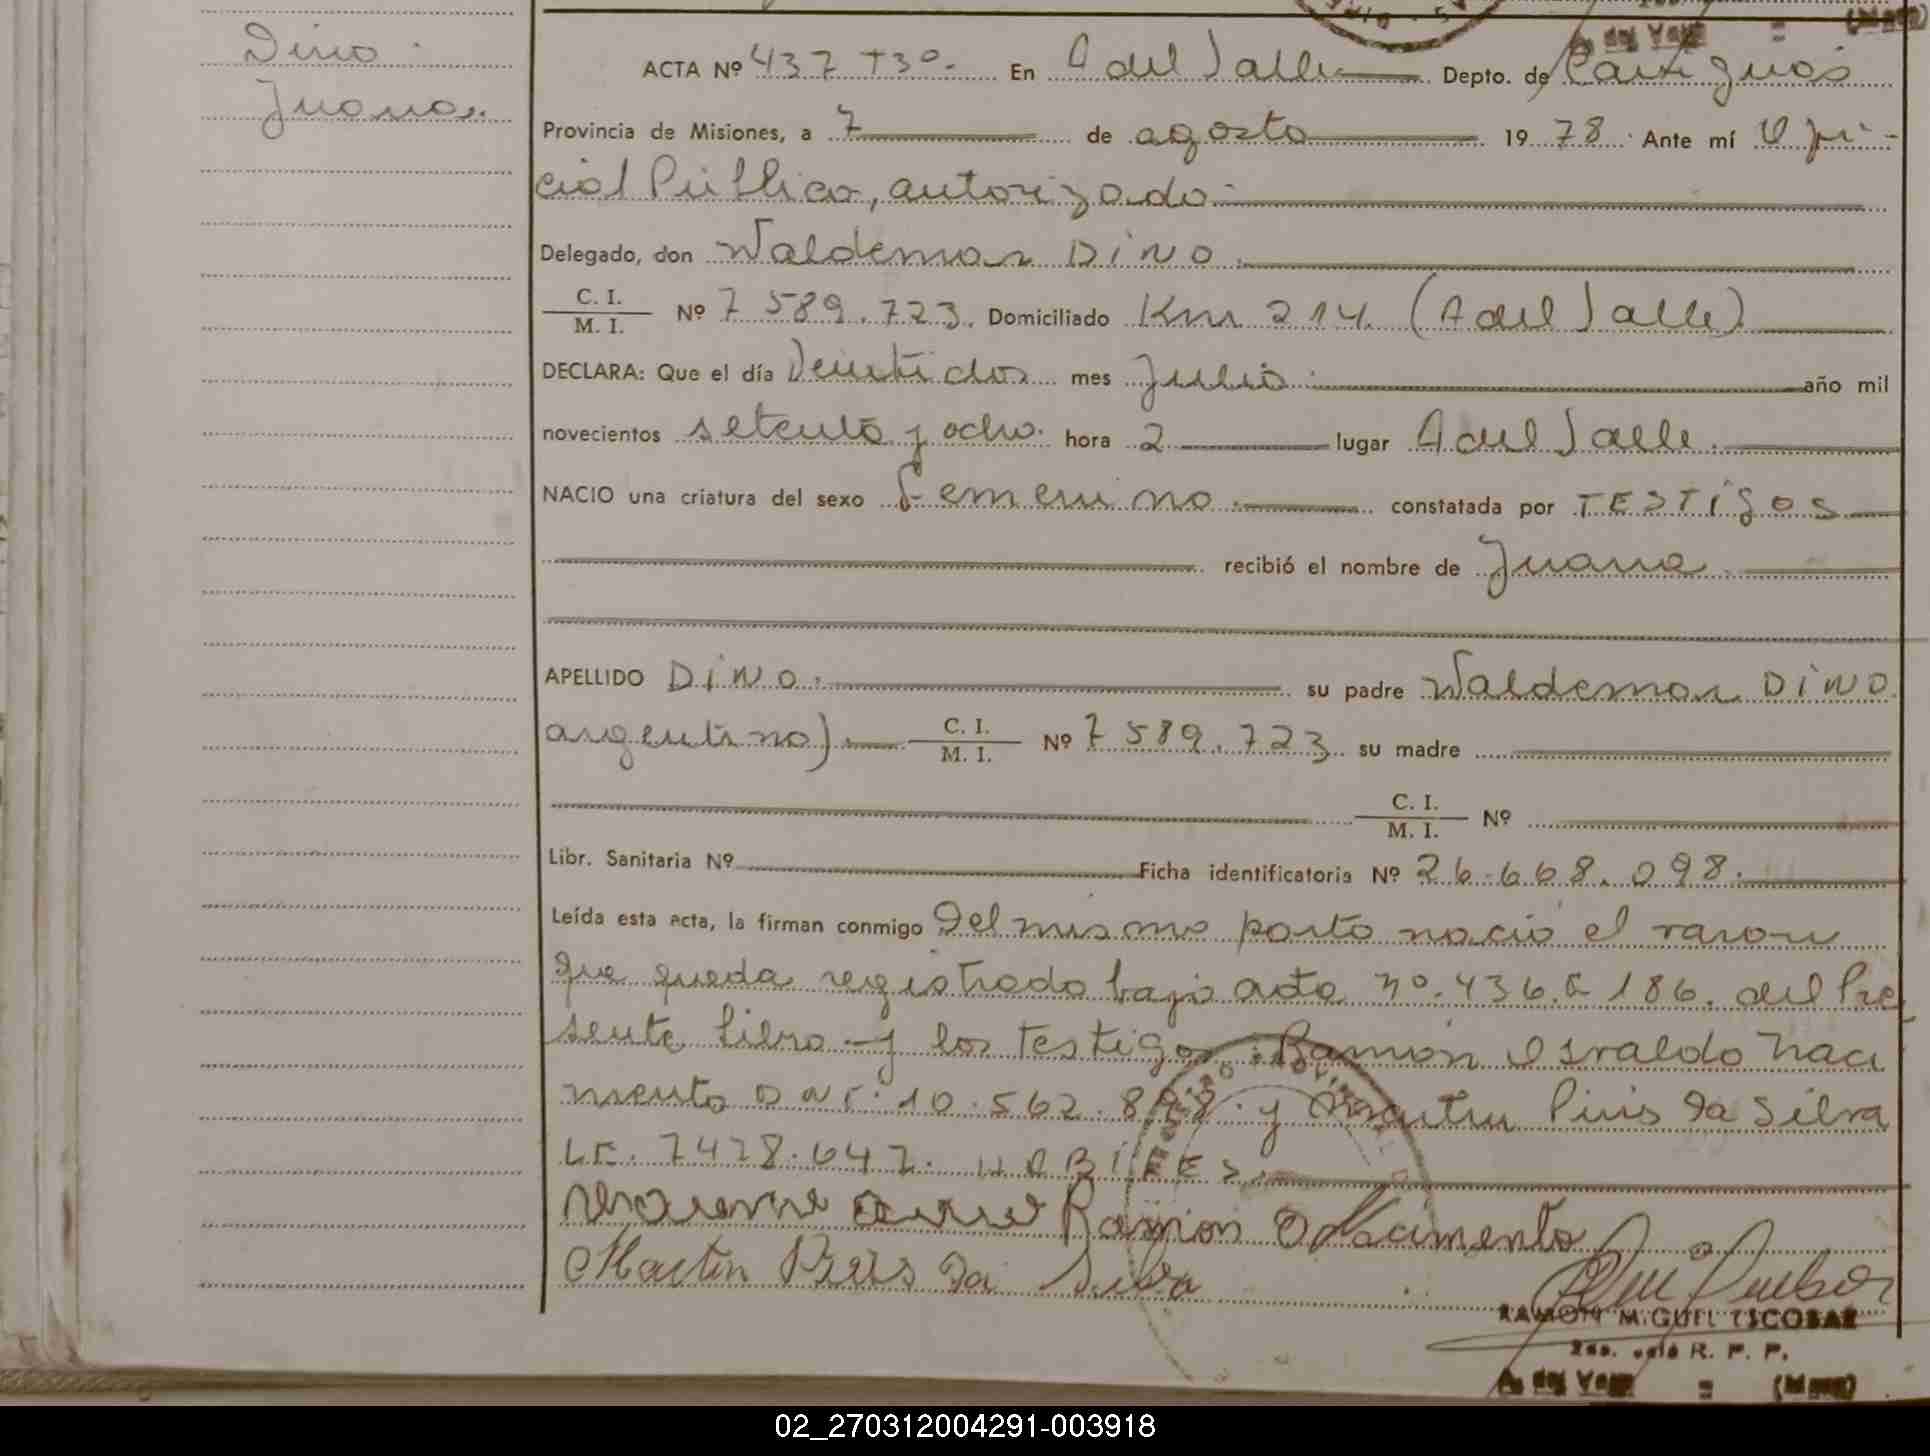 Dino
Juana.
ACTA Nº 437 T3º. En A del Valle Depto. de Cainguás
Provincia de Misiones, a 7 de agosto 1978. Ante mí Ofi-
cial Público, autorizado
Delegado, don Waldemar DiNO.
C. I. / M. I. Nº 7 589.723. Domiciliado Km 214. (A del Valle)
DECLARA: Que el día Veintidos mes Julio año mil
novecientos setenta y ocho. hora 2 lugar A del Valle.
NACIO una criatura del sexo Femenino. constatada por TESTigos
recibió el nombre de Juana
APELLIDO DiNO. su padre Waldemar DiNO
argentino) C. I. / M. I. Nº 7 589.723 su madre
C. I. / M. I. Nº
Libr. Sanitaria Nº Ficha identificatoria Nº 26.668.098.
Leída esta acta, la firman conmigo Del mismo parto nació el varon
que queda registrado bajo acta nº.436. 186. del Pre
sente libro y los testigos: Ramón Osvaldo Naci
mento DNI. 10.562. y Martin Piris Da Silva
LE. 7428.647. HABILES.
Ramon O Nacimento
Martin Da Silva
RAMON MIGUEL ESCOBAR
R. P. P.
A. del Valle = (Mnes)
02_270312004291-003918